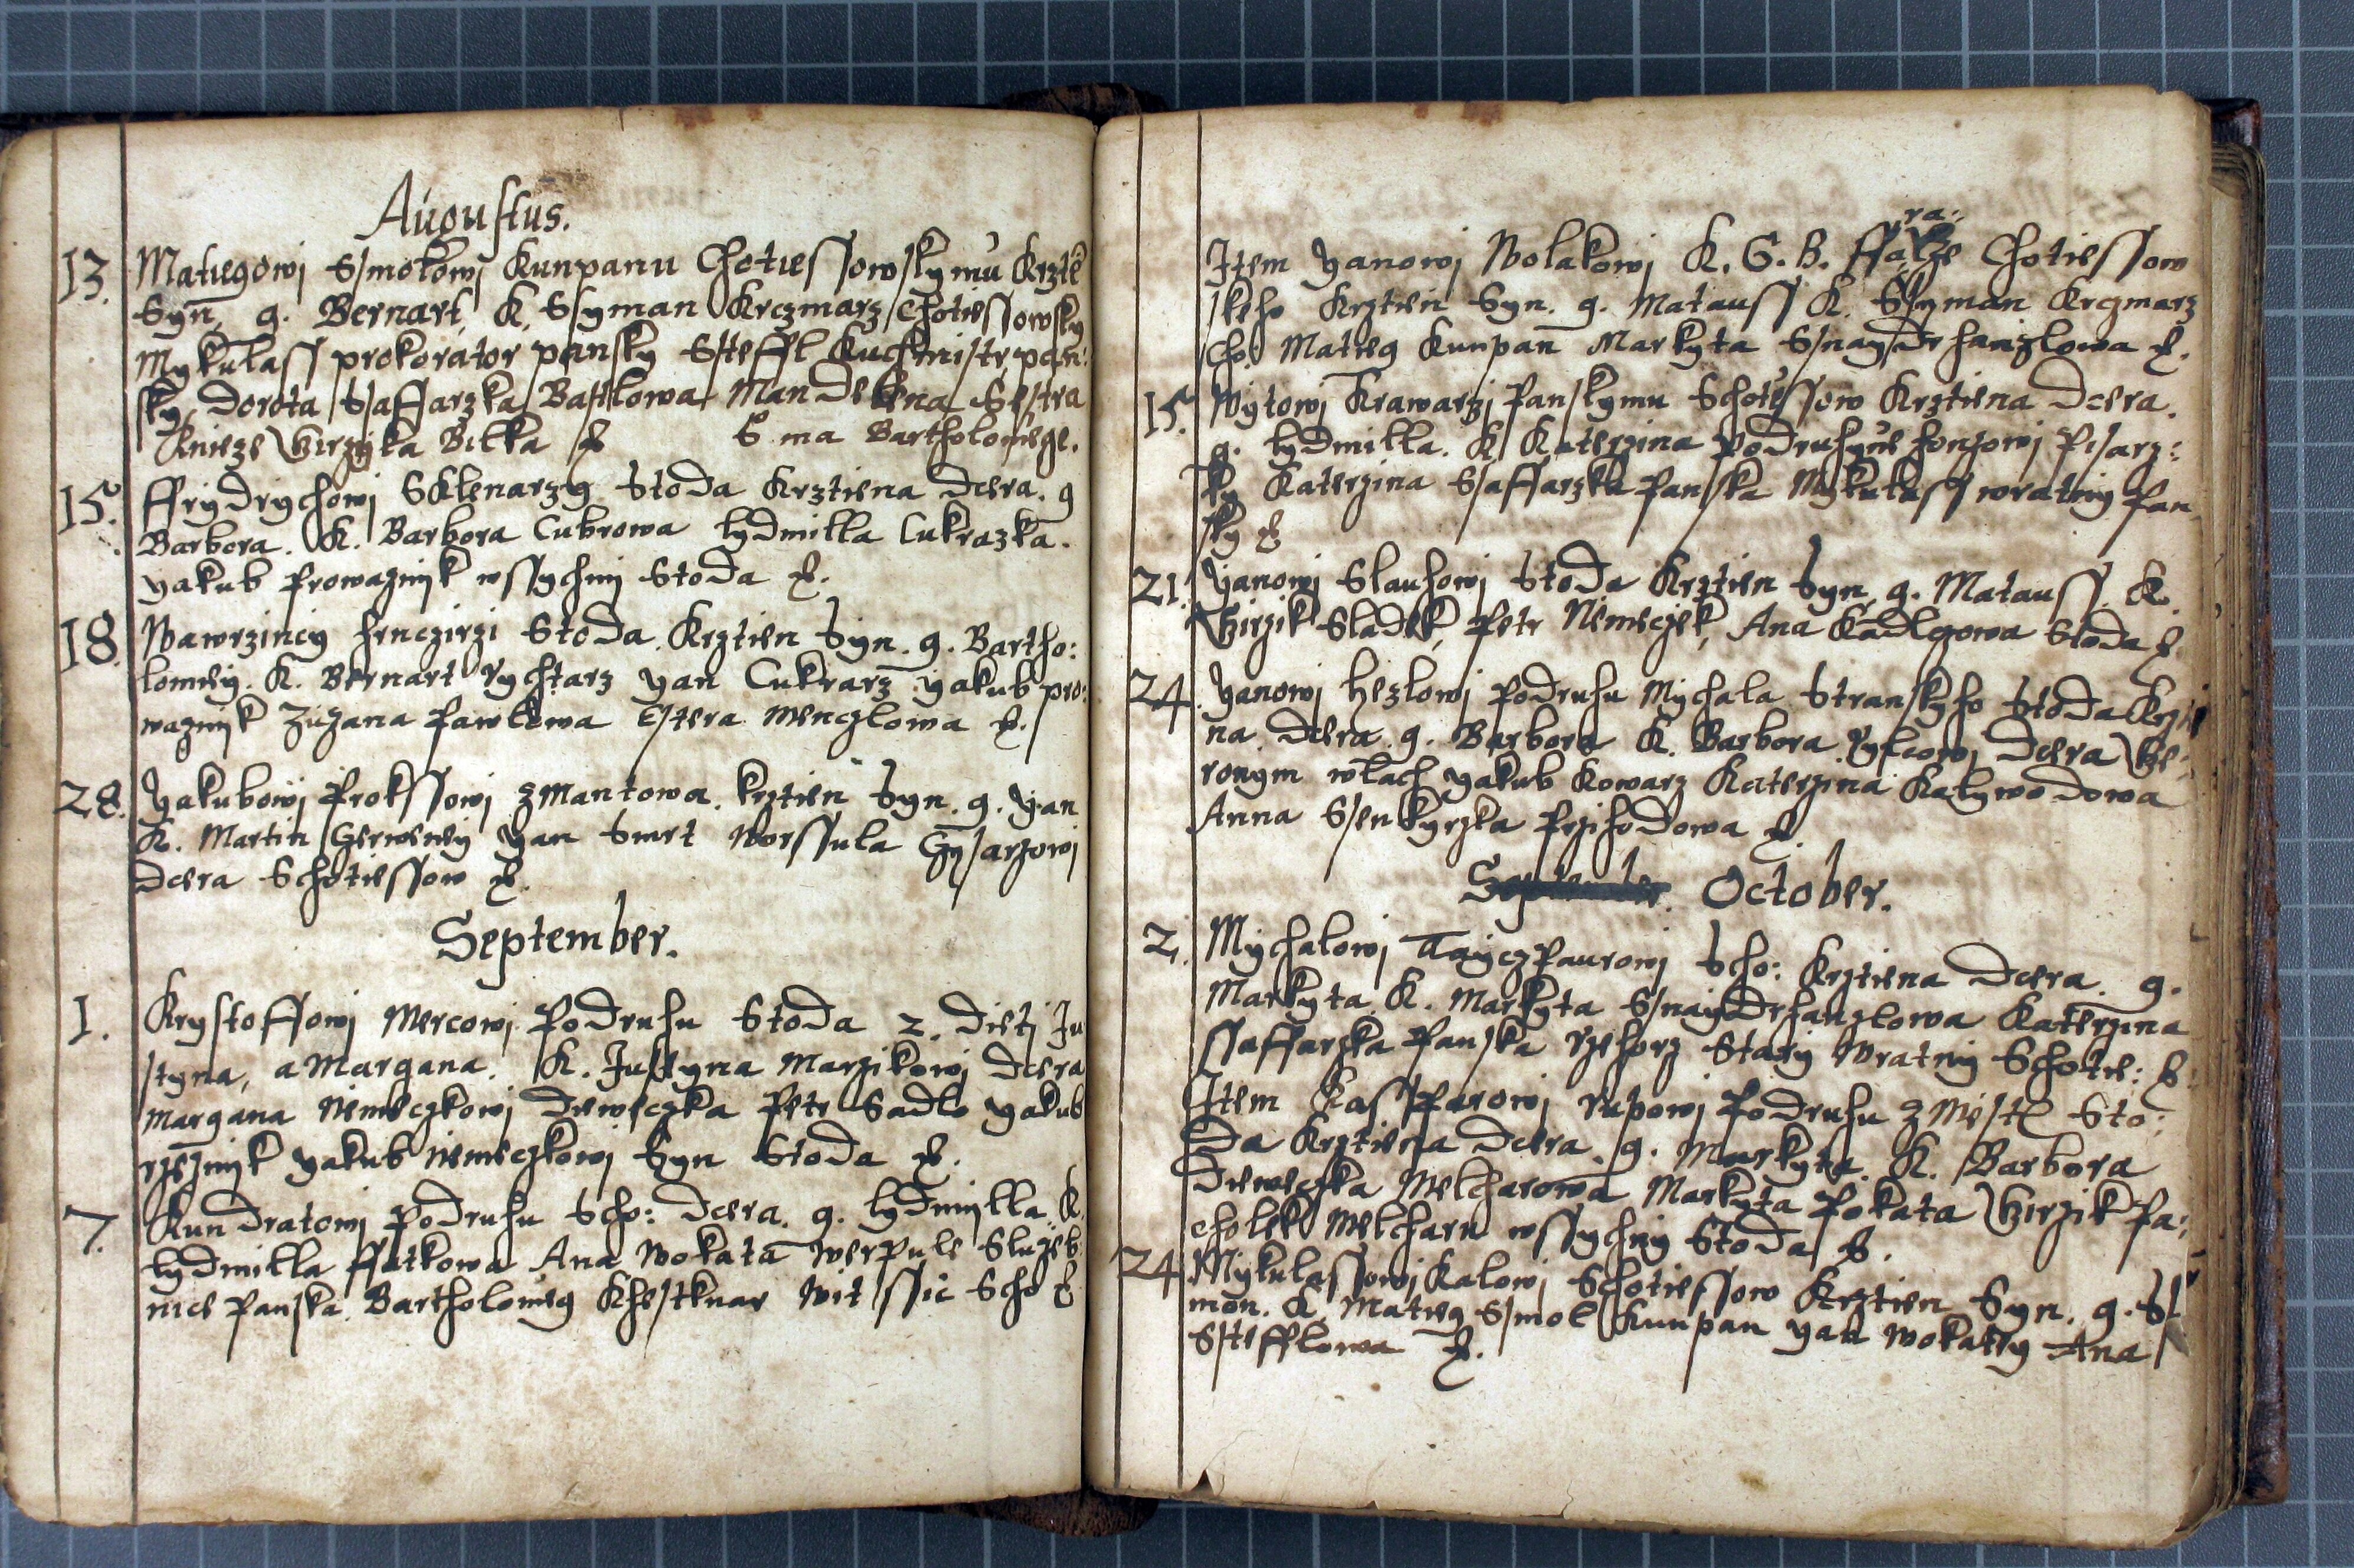 Augustus.
13. Matiegowj Smolowj Kunpanu Chotiessowskymu Krztě
Syn, g. Bernart, K. Ssyman Krczmarz Chotiessowsky
Mykulass prokorator pansky Steffl Kuchmistr pan:
sky, Dorota Ssaffarzka Bartlowa Mandelena Sestra
Knieze Girzyka Bilka &
15. Ffrydrychowj Sklenarzy Stoda Krztiena Dcera. g
Barbora. K. Barbora Cukrowa lydmilla Cukrazka.
yakub prowaznyk wssychnj Stoda &.
18. Wawrzincy hrnczirzi Stoda Krztien Syn. g. Bartho:
lomieg. K. Bernart Rychtarz yan Cukrarz yakub pro:
waznyk Zuzana Pawlowa Estera Menczlowa &.
28. Yakubowj Prokssowj z Mantowa. krztien Syn. g. yan
K. Martin Czerweny yan Smrt Worssula Gysarzowj
Dcera Schotiessow &.
September.
1. Krystoffowj Mercowj Podruhu Stoda 2. Dietj Ju
styna, a Margana. K. Justyna Marzikowj Dcera
Margana Niemeczkowj Dieweczka Petr Sadlo yakub
rzeznyk yakub Niemeczkowj Syn Stoda &.
7. Kundratowj Podruhu Scho: Dcera. g. lydmylla K.
lydmilla Ana Wokata Sluzeb:
nice Panska Bartholomeg Scho &
Item Yanowj Wolakowj K. S. B. ffarze Chotiessow
skeho Krztien Syn. g. Matauss K. Ssyman Krczmarz
Cho: Matieg Kunpan Markyta Snaydrhanzlowa &.
15. Wytowj Krawarzi Panskymu Schotessow Krztiena Dcera.
g. lydmilla. K. Katerzina Podruhyne honzowj Pisarz:
ky Katerzina Ssaffarzka Panska Mykulass wratny Pan
sky &
21. Yanowj Slauhowj Stoda Krztien Syn, g. Matauss K.
Girzik Sladek, Petr Niemeczek, Ana Kadlczowa Stoda &
24. Yanowj hezlowj Podruhu Mychala Stranskyho Stoda Krztie
na Dcera. g. Barbora K. Barbora Dcera Ge:
ronym wlach yakub Kowarz Katerzina Kalywodowa
Anna Ssenkyrzka Przihodowa &.
September. October.
2. Mychalowj Tayczpaurowj Scho: Krztiena Dcera. g.
Markyta. K. Markyta Snaydrhanzlowa Katerzina
Ssaffarzka Panska Rzehorz Stary Wratny Schotie: &
Item Kassparowj Rupowj Podruhu z Miest Sto:
da Krztiena Dcera. g. Markyta. K. Barbora
Dieweczka Melcharowa Markyta Pokata Girzik Pa:
cholek Melcharu wssychny Stoda &.
24. Mykulassowj Kalowj Schotiessow Krztien Syn. g. Sy
mon. K. Matieg Smol Kunpan yan Wokaty Ana
Stefflowa &.